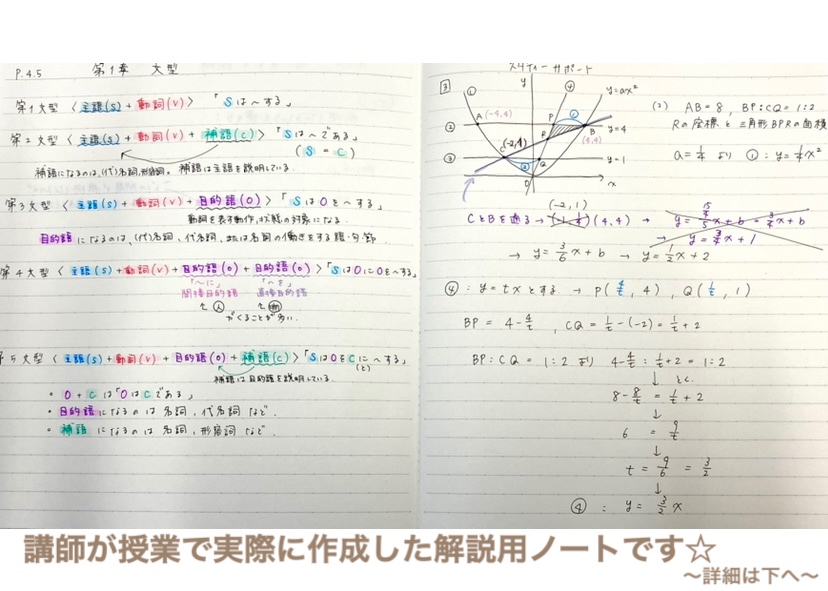 P.4.5 第1章 文型
第1文型 〈 主語(S) + 動詞(V) 〉 「Sは〜する」
第2文型 〈 主語(S) + 動詞(V) + 補語(C) 〉 「Sは〜である」
(S = C)
補語になるのは、(代)名詞,形容詞。 補語は主語を説明している.
第3文型 〈 主語(S) + 動詞(V) + 目的語(O) 〉 「SはOを〜する」
動詞を表す動作,状態の対象になる.
目的語になるのは、(代)名詞、代名詞、または名詞の働きをする語・句・節.
第4文型 〈 主語(S) + 動詞(V) + 目的語(O) + 目的語(O) 〉「SはOにOを〜する」
「〜に」 「〜を」
間接目的語 直接目的語
人 物
がくることが多い.
第5文型 〈 主語(S) + 動詞(V) + 目的語(O) + 補語(C) 〉「SはOをCに〜する」
(と)
補語は目的語を説明している.
・ O + C は「OはCである」
・ 目的語になるのは 名詞、代名詞 など.
・ 補語 になるのは 名詞,形容詞 など.
スタディーサポート
3
① y ④ y=ax²
A (-4,4) P
② B y=4
R (4,4)
C (-2,1)
③ Q y=1
O x
(2) AB=8, BP:CQ=1:2
Rの座標と三角形BPRの面積
a=1/4 より ①:y=1/4x²
(-2,1)
CとBを通る → (4,4) →
→ y=3/4x+1
→ y=3/6x+b → y=1/2x+2
④ : y=tx とする → P(4/t, 4), Q(1/t, 1)
BP = 4-4/t , CQ = 1/t-(-2) = 1/t+2
BP:CQ = 1:2 より 4-4/t : 1/t+2 = 1:2
↓
8-8/t = 1/t+2
↓
6 = 9/t
↓
t = 9/6 = 3/2
↓
④ : y= 3/2x
講師が授業で実際に作成した解説用ノートです☆
〜詳細は下へ〜